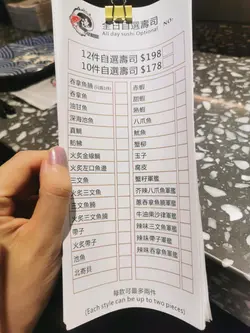 全日自選壽司
All day sushi Optional
NO.
12件自選壽司 $198
10件自選壽司 $178
吞拿魚腩
吞拿魚
油甘魚
深海池魚
真鯛
鯧鯷
火炙金線鯛
火炙左口魚邊
三文魚
火炙三文魚
三文魚腩
火炙三文魚腩
帶子
火炙帶子
池魚
北寄貝
赤蝦
甜蝦
熟蝦
八爪魚
魷魚
蟹柳
玉子
腐皮
蟹籽軍艦
芥辣八爪魚軍艦
蔥吞拿魚蓉軍艦
牛油果沙律軍艦
辣味三文魚軍艦
辣味帶子軍艦
辣味吞拿魚軍艦
每款可最多兩件
(Each style can be up to two pieces)